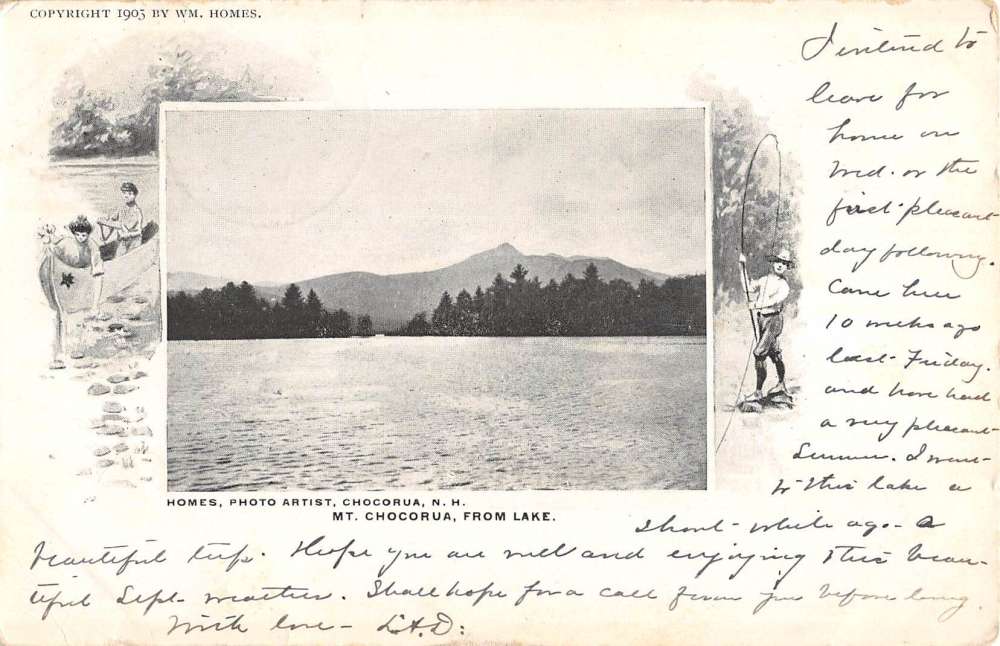 COPYRIGHT 1903 BY WM. HOMES.
I intend to
leave for
home on
Wed. or the
first pleasant
day following.
Came here
10 weeks ago
last Friday.
and have had
a very pleasant
Summer. I went
to this lake a
short while ago - a
HOMES, PHOTO ARTIST, CHOCORUA, N. H.
MT. CHOCORUA, FROM LAKE.
beautiful trip. Hope you are well and enjoying this beau-
tiful Sept. weather. Shall hope for a call from you before long.
With love - L.A.D.